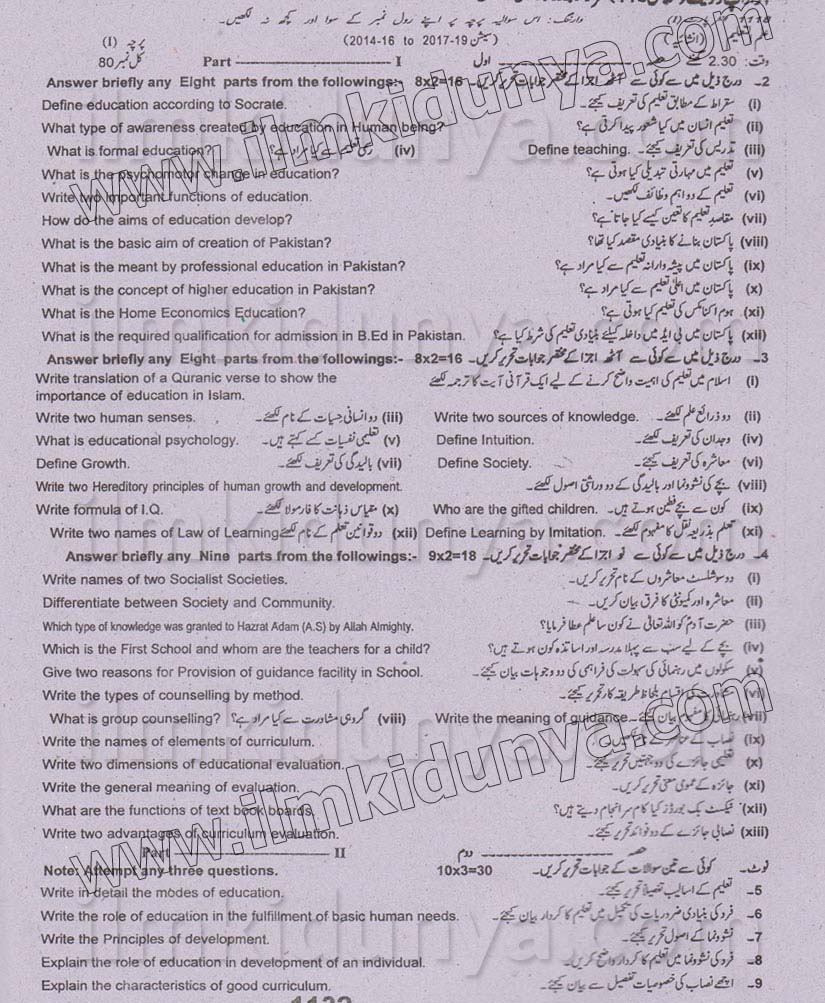 وارننگ: اس سوالیہ پرچہ پر اپنے رول نمبر کے سوا اور کچھ نہ لکھیں۔
(سیشن 2014-16 to 2017-19) پرچہ (I)
وقت: 2.30 گھنٹے حصہ اول Part ---------------- I کل نمبر 80
Answer briefly any Eight parts from the followings:- 8x2=16 درج ذیل میں سے کوئی سے آٹھ اجزا کے مختصر جوابات تحریر کریں۔ -2
Define education according to Socrate. سقراط کے مطابق تعلیم کی تعریف کیجئے۔ (i)
What type of awareness created by education in Human being? تعلیم انسان میں کیا شعور پیدا کرتی ہے؟ (ii)
What is formal education? رسمی تعلیم سے کیا مراد ہے؟ (iv) Define teaching. تدریس کی تعریف کیجئے۔ (iii)
What is the psychomotor change in education? تعلیم میں مہارتی تبدیلی کیا ہوتی ہے؟ (v)
Write two important functions of education. تعلیم کے دو اہم وظائف لکھیں۔ (vi)
How do the aims of education develop? مقاصد تعلیم کا تعین کیسے کیا جاتا ہے؟ (vii)
What is the basic aim of creation of Pakistan? پاکستان بنانے کا بنیادی مقصد کیا تھا؟ (viii)
What is the meant by professional education in Pakistan? پاکستان میں پیشہ وارانہ تعلیم سے کیا مراد ہے؟ (ix)
What is the concept of higher education in Pakistan? پاکستان میں اعلیٰ تعلیم سے کیا مراد ہے؟ (x)
What is the Home Economics Education? ہوم اکنامکس کی تعلیم کیا ہوتی ہے؟ (xi)
What is the required qualification for admission in B.Ed in Pakistan. پاکستان میں بی ایڈ میں داخلہ کیلئے بنیادی تعلیم کی شرط کیا ہے؟ (xii)
Answer briefly any Eight parts from the followings:- 8x2=16 درج ذیل میں سے کوئی سے آٹھ اجزا کے مختصر جوابات تحریر کریں۔ -3
Write translation of a Quranic verse to show the اسلام میں تعلیم کی اہمیت واضح کرنے کے لیے ایک قرآنی آیت کا ترجمہ لکھئے (i)
importance of education in Islam.
Write two human senses. دو انسانی حسیات کے نام لکھئے۔ (iii) Write two sources of knowledge. دو ذرائع علم لکھئے۔ (ii)
What is educational psychology. تعلیمی نفسیات کسے کہتے ہیں۔ (v) Define Intuition. وجدان کی تعریف لکھئے۔ (iv)
Define Growth. بالیدگی کی تعریف لکھئے۔ (vii) Define Society. معاشرہ کی تعریف کیجئے۔ (vi)
Write two Hereditory principles of human growth and development. بچے کی نشوونما اور بالیدگی کے دو وراثتی اصول لکھئے۔ (viii)
Write formula of I.Q. مقیاس ذہانت کا فارمولا لکھئے۔ (x) Who are the gifted children. کون سے بچے فطین ہوتے ہیں۔ (ix)
Write two names of Law of Learning دو قوانین تعلم کے نام لکھئے (xii) Define Learning by Imitation. تعلم بذریعہ نقل کا مفہوم لکھئے۔ (xi)
Answer briefly any Nine parts from the followings:- 9x2=18 درج ذیل میں سے کوئی سے نو اجزا کے مختصر جوابات تحریر کریں۔ -4
Write names of two Socialist Societies. دو سوشلسٹ معاشروں کے نام تحریر کریں۔ (i)
Differentiate between Society and Community. معاشرہ اور کمیونٹی کا فرق بیان کریں۔ (ii)
Which type of knowledge was granted to Hazrat Adam (A.S) by Allah Almighty. حضرت آدمؑ کو اللہ تعالیٰ نے کون سا علم عطا فرمایا؟ (iii)
Which is the First School and whom are the teachers for a child? بچے کے لیے سب سے پہلا مدرسہ اور اساتذہ کون ہوتے ہیں؟ (iv)
Give two reasons for Provision of guidance facility in School. سکولوں میں رہنمائی کی سہولت کی فراہمی کی دو وجوہات بیان کیجئے۔ (v)
Write the types of counselling by method. اقسام بلحاظ طریقہ کار تحریر کیجئے۔ (vi)
What is group counselling? گروہی مشاورت سے کیا مراد ہے؟ (viii) Write the meaning of guidance. رہنمائی کا مفہوم بیان کیجئے۔ (vii)
Write the names of elements of curriculum. نصاب کے عناصر کے نام لکھیں۔ (ix)
Write two dimensions of educational evaluation. تعلیمی جائزے کی دو جہتیں تحریر کیجئے۔ (x)
Write the general meaning of evaluation. جائزہ کے عمومی معنی تحریر کیجئے۔ (xi)
What are the functions of text book boards. ٹیکسٹ بک بورڈز کیا کام سرانجام دیتے ہیں؟ (xii)
Write two advantages of curriculum evaluation. نصابی جائزے کے دو فوائد تحریر کیجئے۔ (xiii)
Part ---------------- II حصہ دوم
Note: Attempt any three questions. 10x3=30 کوئی سے تین سوالات کے جوابات تحریر کریں۔ نوٹ۔
Write in detail the modes of education. تعلیم کے اسالیب تفصیلاً تحریر کیجئے۔ -5
Write the role of education in the fulfillment of basic human needs. فرد کی بنیادی ضروریات کی تکمیل میں تعلیم کا کردار بیان کیجئے۔ -6
Write the Principles of development. نشوونما کے اصول تحریر کیجئے۔ -7
Explain the role of education in development of an individual. فرد کی نشوونما میں تعلیم کا کردار واضح کریں۔ -8
Explain the characteristics of good curriculum. اچھے نصاب کی خصوصیات تفصیل سے بیان کیجئے۔ -9
www.ilmkidunya.com
www.ilmkidunya.com